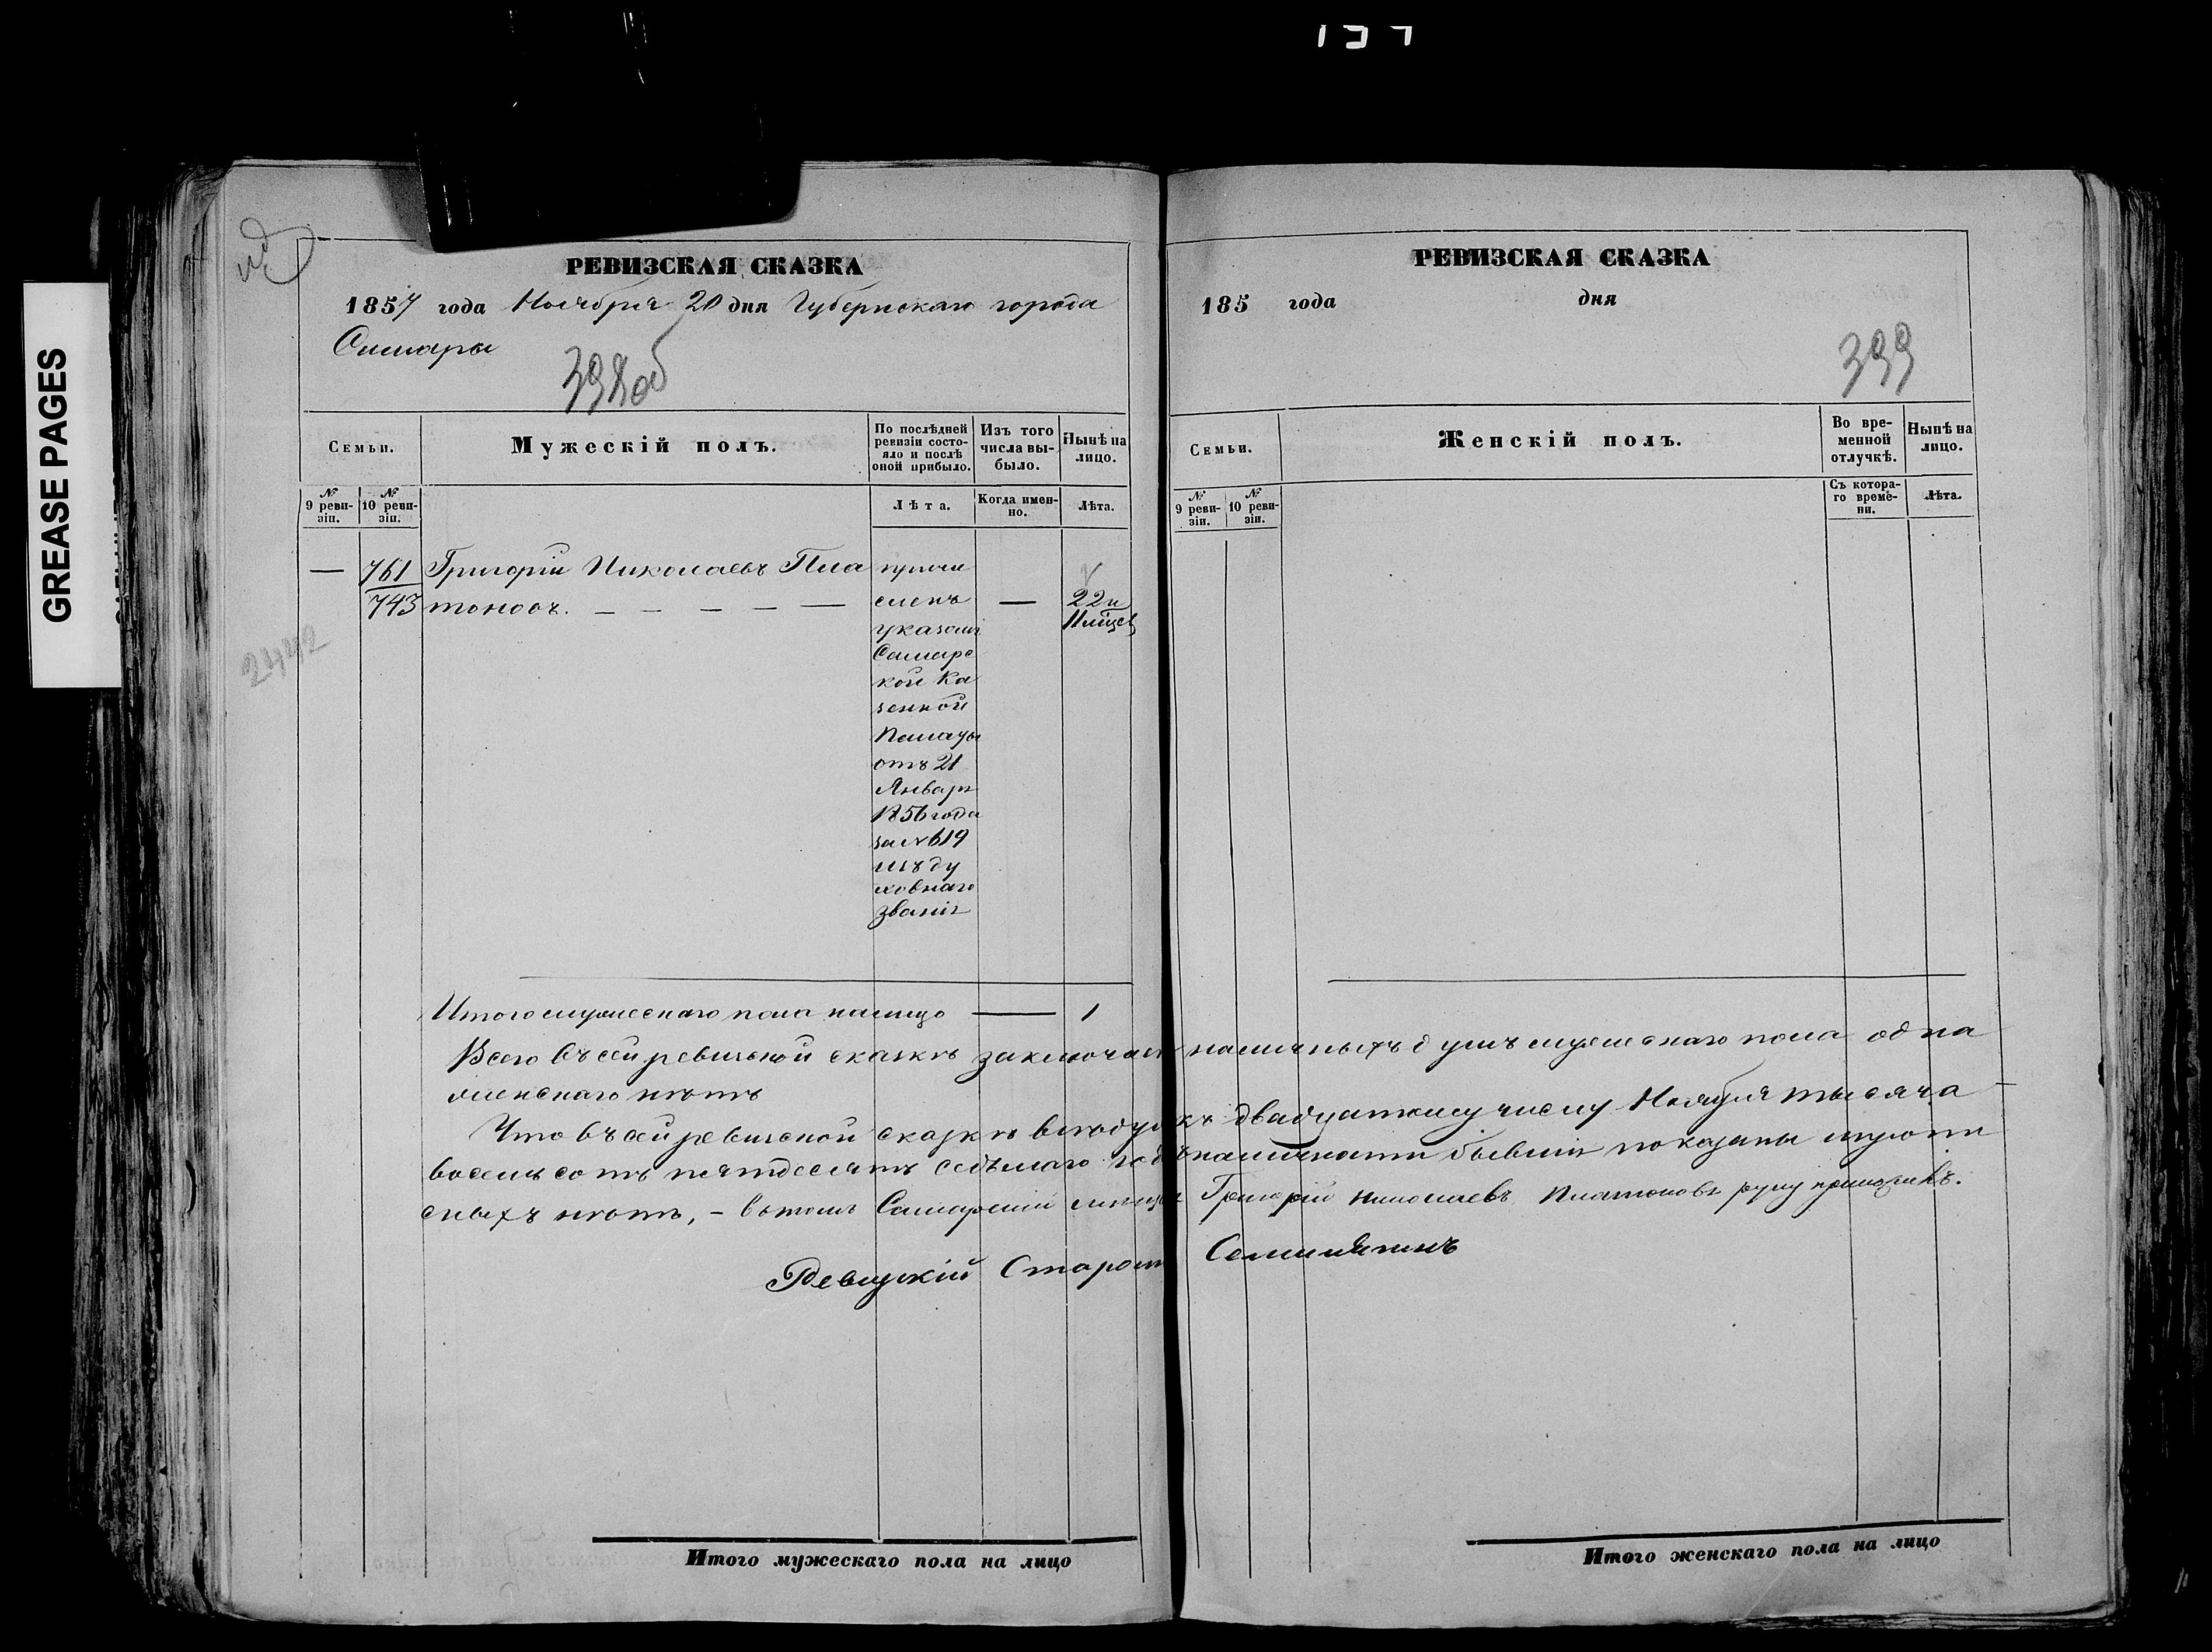 137
GREASE PAGES
РЕВИЗСКАЯ СКАЗКА
1857 года Ноября 20 дня Губернскаго города
Самары
398об
Семьи.
Мужескій полъ.
По послѣдней ревизіи состояло и послѣ оной прибыло.
Изъ того числа выбыло.
Нынѣ на лицо.
№ 9 ревизіи.
№ 10 ревизіи.
Лѣта.
Когда именно.
Лѣта.
— 761 Григорій Николаевъ Пла
743 тоновъ. — — — — —
причи
сленъ
указомъ
Самарс
кой Ка
зенной
Палаты
отъ 21
Января
1856 года
за № 619
изъ ду
ховнаго
званія
—
22 и
2442
Итого мужескаго пола на лицо — 1
Всего въ сей ревизской сказкѣ заключает наличныхъ душъ мужескаго пола одна
женскаго нѣтъ
Что въ сей ревизской сказкѣ всѣ души къ двадцатому числу Ноября тысяча
восемьсотъ пятдесятъ седьмаго года въ наличности бывшія показаны и пропу
сныхъ нѣтъ, – въ томъ Самарскій мѣщан Григорій Николаевъ Платоновъ руку приложилъ.
Ревизскій Старост
РЕВИЗСКАЯ СКАЗКА
185 года дня
399
Семьи.
Женскій полъ.
Во временной отлучкѣ.
Нынѣ на лицо.
№ 9 ревизіи.
№ 10 ревизіи.
Съ котораго времени.
Лѣта.
Итого мужескаго пола на лицо
Итого женскаго пола на лицо